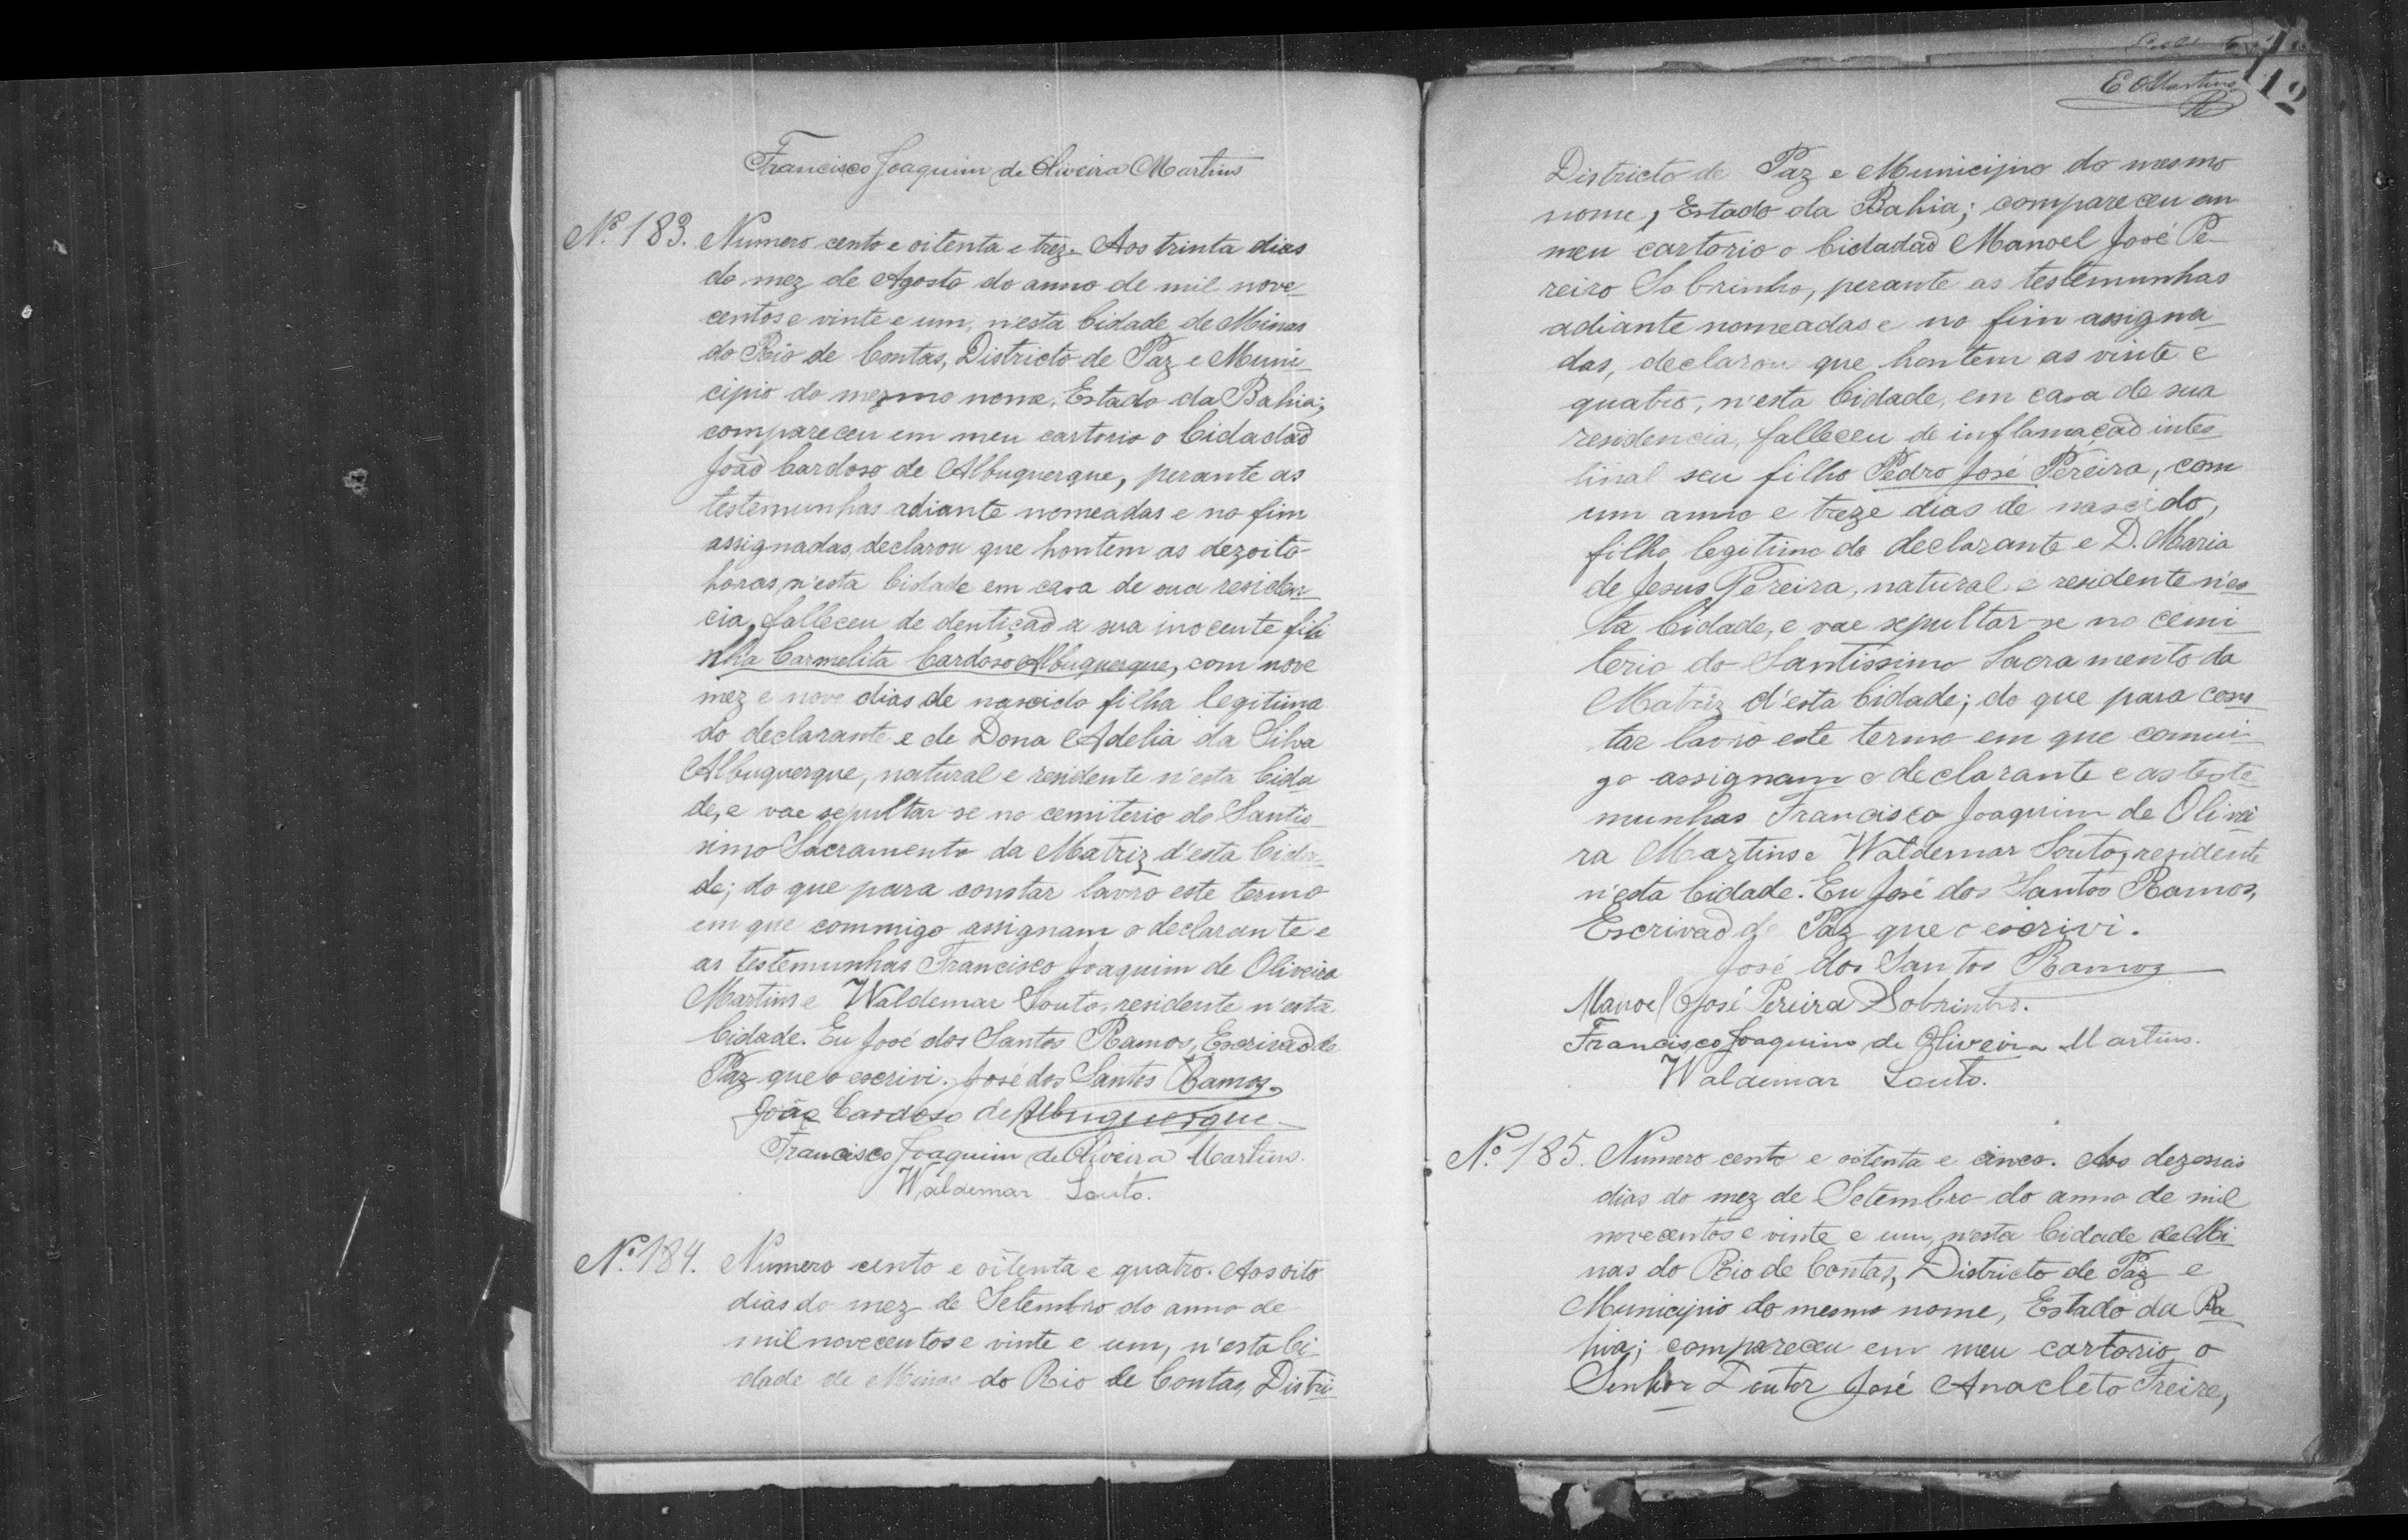 Francisco Joaquim de Oliveira Martins
Nº 183. Numero cento e oitenta e trez. Aos trinta dias
do mez de Agosto do anno de mil nove-
centos e vinte e um, n'esta Cidade de Minas
do Rio de Contas, Districto de Paz e Muni-
cipio do mesmo nome, Estado da Bahia;
compareceu em meu cartorio o Cidadaõ
Joaõ Cardoso de Albuquerque, perante as
testemunhas adiante nomeadas e no fim
assignadas, declarou que hontem as dezoito
horas, n'esta Cidade em casa de sua residen-
cia, falleceu de dentiçaõ a sua inocente fili-
nha Carmelita Cardoso Albuquerque, com nove
mez e nove dias de nascido filha legitima
do declarante e de Dona Adelia da Silva
Albuquerque, natural e residente n'esta Cida-
de, e vae sepultar-se no cemiterio do Santis-
simo Sacramento da Matriz d'esta Cida-
de; do que para constar lavro este termo
em que commigo assignam o declarante e
as testemunhas Francisco Joaquim de Oliveira
Martins e Waldemar Souto, residente n'esta
Cidade. Eu José dos Santos Ramos, Escrivaõ de
Paz que o escrivi. José dos Santos Ramos,
João Cardoso de Albuquerque
Francisco Joaquim de Oliveira Martins.
Waldemar Souto.
Nº 184. Numero cento e oitenta e quatro. Aos oito
dias do mez de Setembro do anno de
mil novecentos e vinte e um, n'esta Ci-
dade de Minas do Rio de Contas, Distri-
E. Martins
112
Districto de Paz e Municipio do mesmo
nome, Estado da Bahia; compareceu em
meu cartorio o Cidadaõ Manoel José Pe-
reiro Sobrinho, perante as testemunhas
adiante nomeadas e no fim assigna-
das, declarou que hontem as vinte e
quatro, n'esta Cidade, em casa de sua
residencia, falleceu de inflamaçaõ intes-
tinal seu filho Pedro José Pereira, com
um anno e treze dias de nascido,
filho legitimo do declarante e D. Maria
de Jesus Pereira, natural e residente n'es-
ta Cidade, e vae sepultar-se no cemi-
terio do Santissimo Sacramento da
Matriz d'esta Cidade; do que para cons-
tar lavro este termo em que comui-
go assignam o declarante e as teste-
munhas Francisco Joaquim de Olivei-
ra Martins e Waldemar Souto, residente
n'esta Cidade. Eu José dos Santos Ramos,
Escrivaõ de Paz que o escrivi.
José dos Santos Ramos
Manoel José Pereira Sobrinho.
Francisco Joaquim de Oliveira Martins.
Waldemar Souto.
Nº 185. Numero cento e oitenta e cinco. Aos dezeseis
dias do mez de Setembro do anno de mil
novecentos e vinte e um, n'esta Cidade de Mi-
nas do Rio de Contas, Districto de Paz e
Municipio do mesmo nome, Estado da Ba-
hia; compareceu em meu cartorio o
Senhor Doutor José Anacleto Freire,